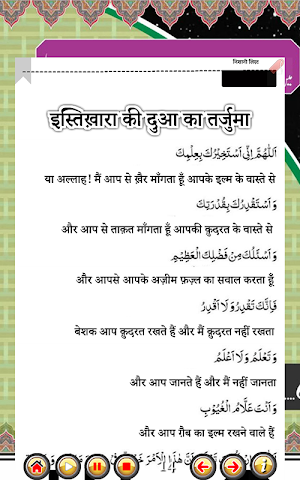 निशानी लिस्ट
इस्तिख़ारा की दुआ का तर्जुमा
اَللّٰهُمَّ اِنِّیْ اَسْتَخِیْرُكَ بِعِلْمِكَ
या अल्लाह! मैं आप से ख़ैर माँगता हूँ आपके इल्म के वास्ते से
وَاَسْتَقْدِرُكَ بِقُدْرَتِكَ
और आप से ताक़त माँगता हूँ आपकी क़ुदरत के वास्ते से
وَاَسْئَلُكَ مِنْ فَضْلِكَ الْعَظِیْمِ
और आपसे आपके अज़ीम फ़ज़्ल का सवाल करता हूँ
فَاِنَّكَ تَقْدِرُ وَلَا اَقْدِرُ
बेशक आप क़ुदरत रखते हैं और मैं क़ुदरत नहीं रखता
وَتَعْلَمُ وَلَا اَعْلَمُ
और आप जानते हैं और मैं नहीं जानता
وَاَنْتَ عَلَّامُ الْغُیُوْبِ
और आप ग़ैब का इल्म रखने वाले हैं
14